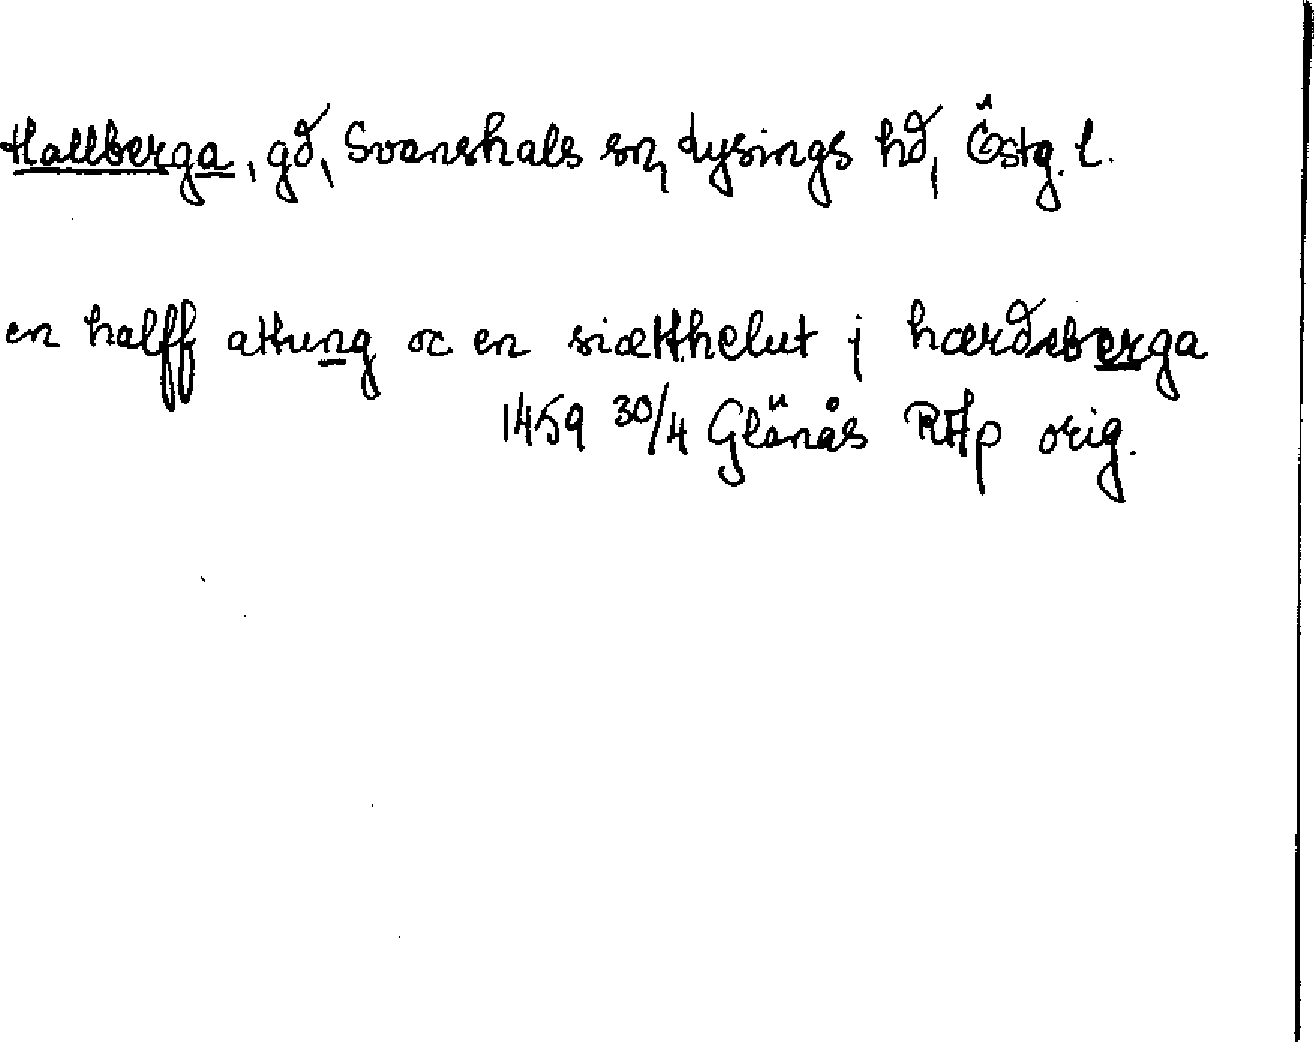 Hallberga, gd, Svanshals sn, Lysings hd, Östg. l.
en halff attung oc en siætthelut j hærdzberga
1459 30/4 Glänås RAp orig.